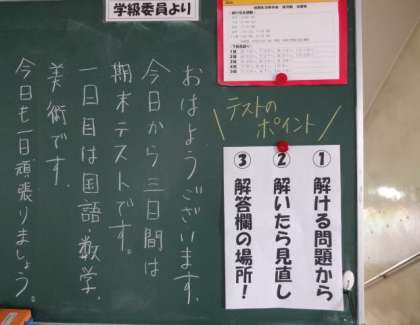 学級委員より
おはようございます。
今日から三日間は
期末テストです。
一日目は国語、数学、
美術です。
今日も一日頑張りましょう。
テストの
ポイント
① 解ける問題から
② 解いたら見直し
③ 解答欄の場所！